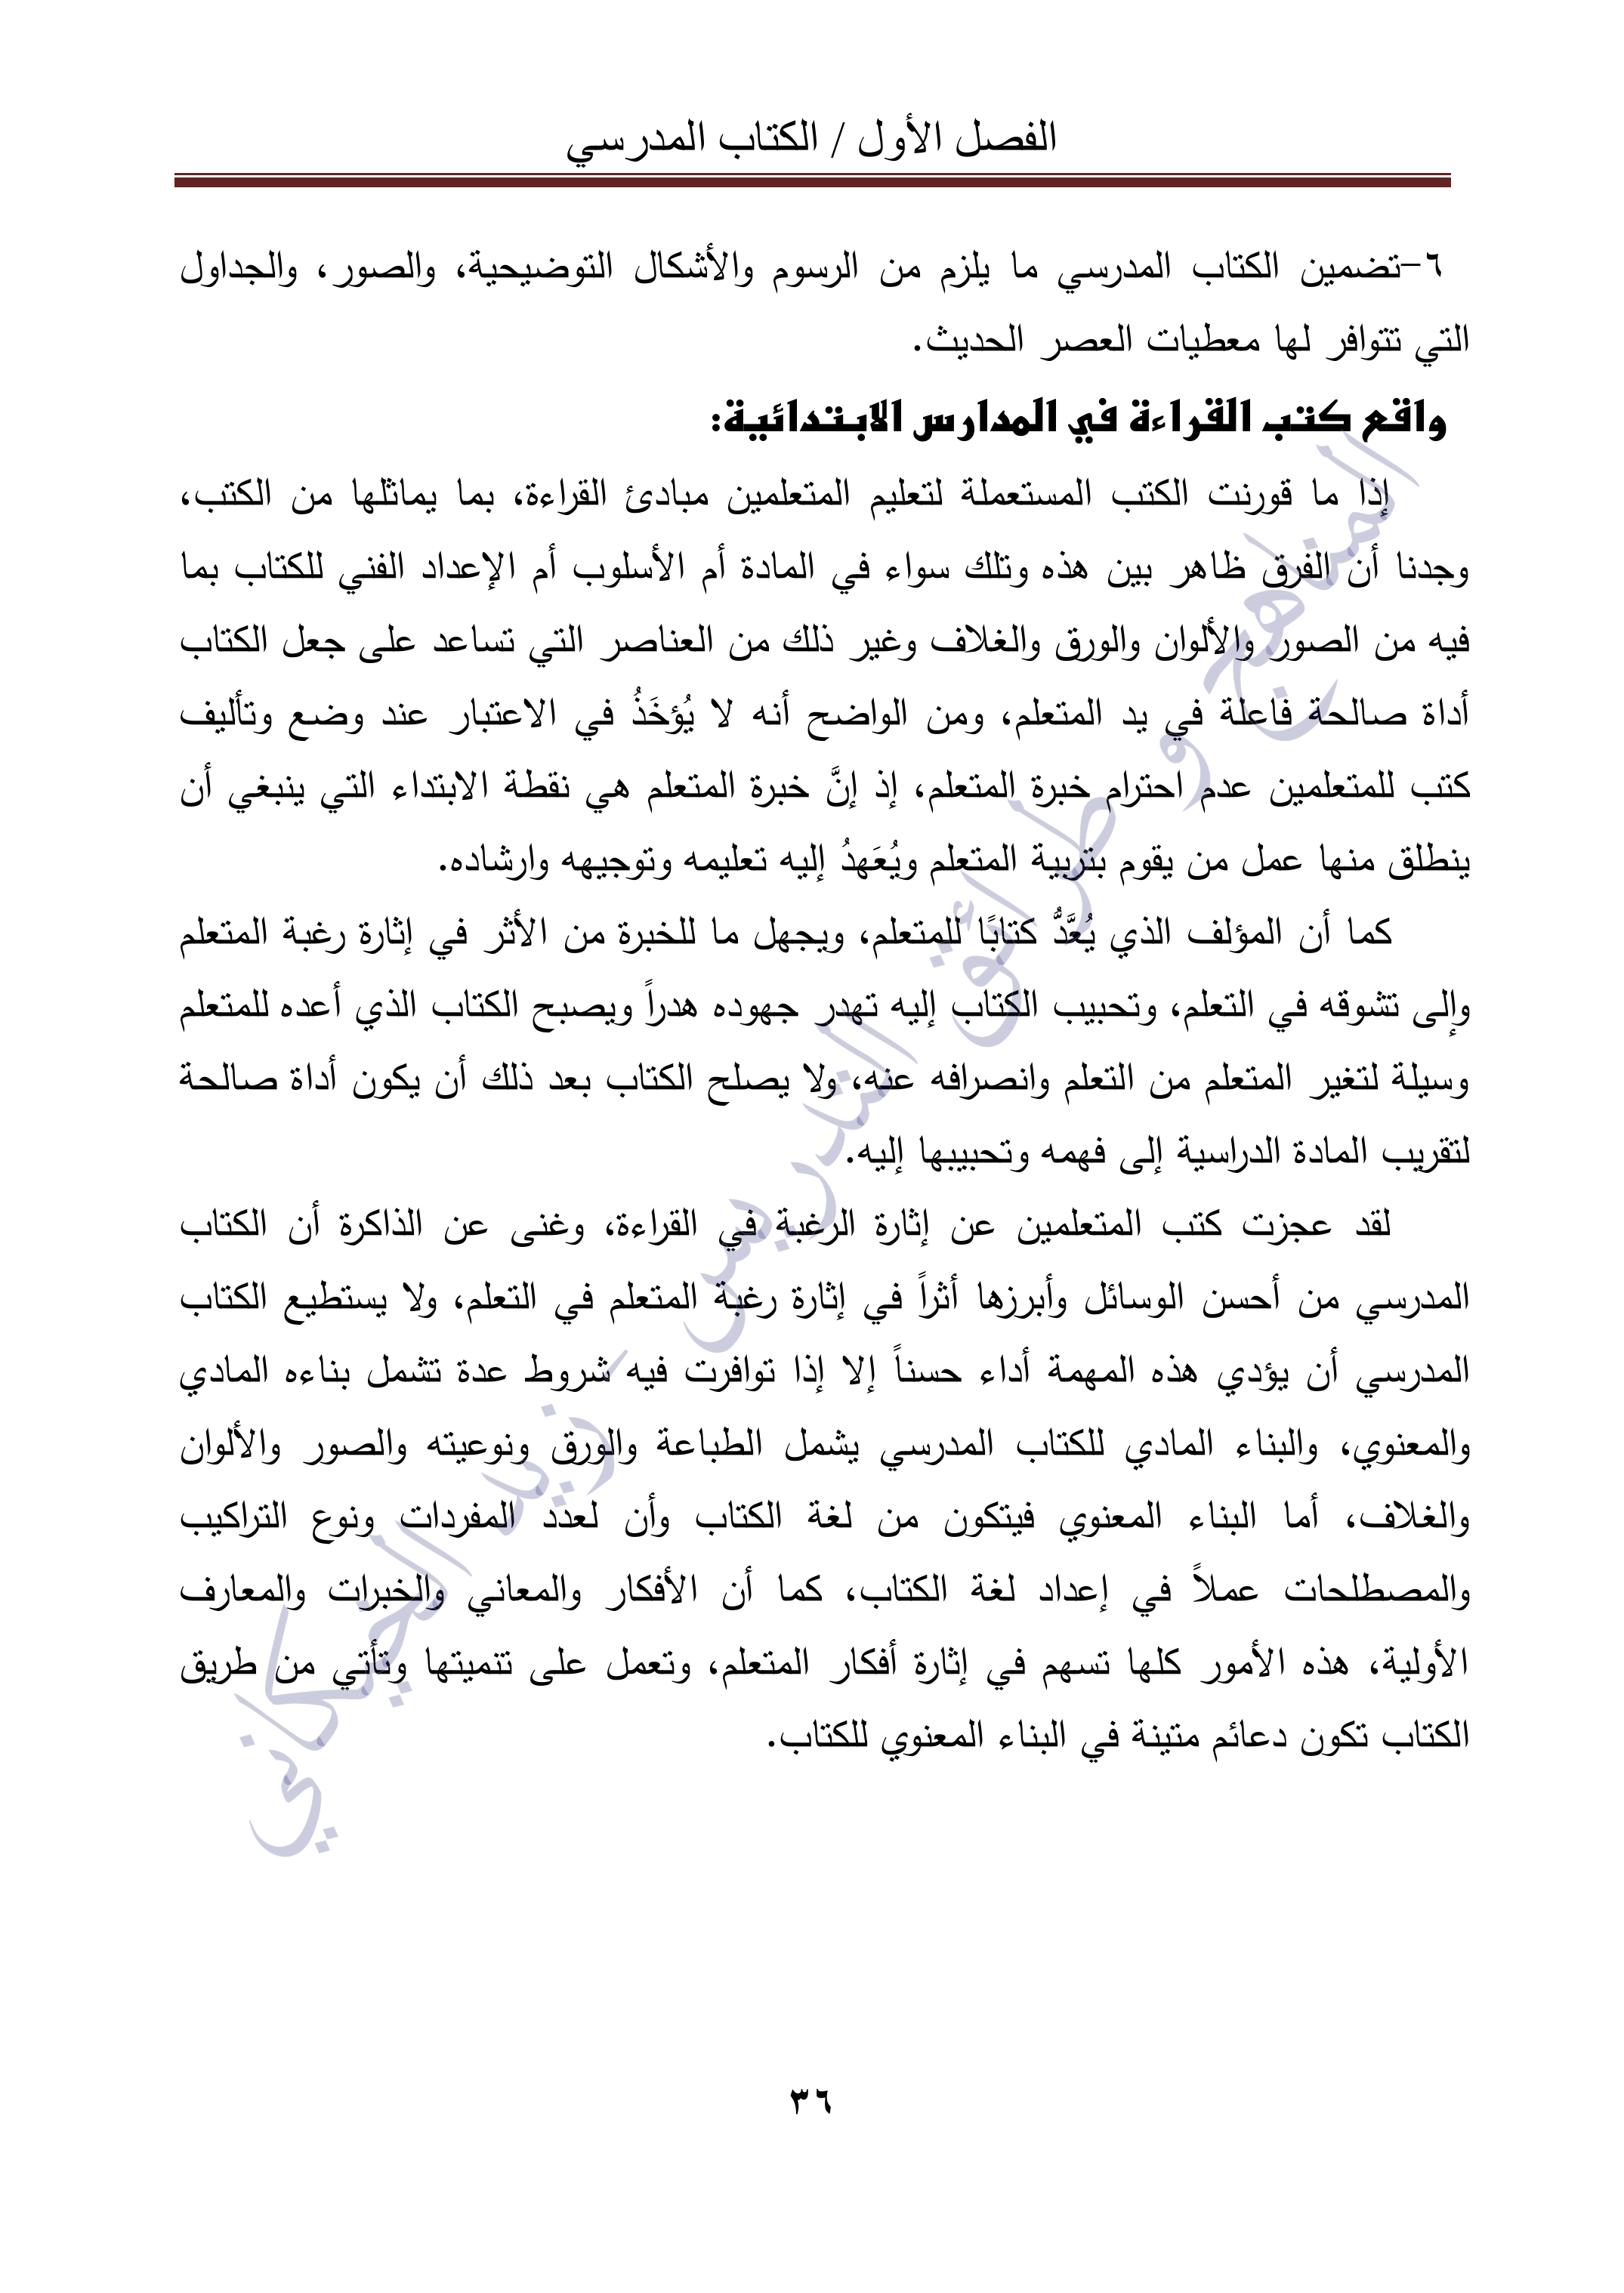 الفصل الأول / الكتاب المدرسي
٦-تضمين الكتاب المدرسي ما يلزم من الرسوم والأشكال التوضيحية، والصور، والجداول
التي تتوافر لها معطيات العصر الحديث.
واقع كتب القراءة في المدارس الابتدائية:
إذا ما قورنت الكتب المستعملة لتعليم المتعلمين مبادئ القراءة، بما يماثلها من الكتب،
وجدنا أن الفرق ظاهر بين هذه وتلك سواء في المادة أم الأسلوب أم الإعداد الفني للكتاب بما
فيه من الصور والألوان والورق والغلاف وغير ذلك من العناصر التي تساعد على جعل الكتاب
أداة صالحة فاعلة في يد المتعلم، ومن الواضح أنه لا يُؤخَذُ في الاعتبار عند وضع وتأليف
كتب للمتعلمين عدم احترام خبرة المتعلم، إذ إنَّ خبرة المتعلم هي نقطة الابتداء التي ينبغي أن
ينطلق منها عمل من يقوم بتربية المتعلم ويُعَهدُ إليه تعليمه وتوجيهه وارشاده.
كما أن المؤلف الذي يُعَّدُّ كتابًا للمتعلم، ويجهل ما للخبرة من الأثر في إثارة رغبة المتعلم
وإلى تشوقه في التعلم، وتحبيب الكتاب إليه تهدر جهوده هدراً ويصبح الكتاب الذي أعده للمتعلم
وسيلة لتغير المتعلم من التعلم وانصرافه عنه، ولا يصلح الكتاب بعد ذلك أن يكون أداة صالحة
لتقريب المادة الدراسية إلى فهمه وتحبيبها إليه.
لقد عجزت كتب المتعلمين عن إثارة الرغبة في القراءة، وغنى عن الذاكرة أن الكتاب
المدرسي من أحسن الوسائل وأبرزها أثراً في إثارة رغبة المتعلم في التعلم، ولا يستطيع الكتاب
المدرسي أن يؤدي هذه المهمة أداء حسناً إلا إذا توافرت فيه شروط عدة تشمل بناءه المادي
والمعنوي، والبناء المادي للكتاب المدرسي يشمل الطباعة والورق ونوعيته والصور والألوان
والغلاف، أما البناء المعنوي فيتكون من لغة الكتاب وأن لعدد المفردات ونوع التراكيب
والمصطلحات عملاً في إعداد لغة الكتاب، كما أن الأفكار والمعاني والخبرات والمعارف
الأولية، هذه الأمور كلها تسهم في إثارة أفكار المتعلم، وتعمل على تنميتها وتأتي من طريق
الكتاب تكون دعائم متينة في البناء المعنوي للكتاب.
المناهج و طرائق التدريس - زيد الخيكاني
٣٦